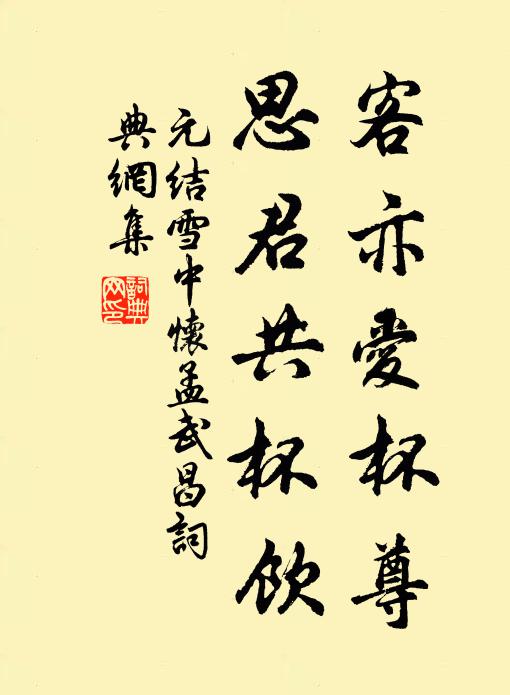 客亦愛杯尊
思君共杯飲
元结雪中懷孟武昌詞
典網集
詞典
网印